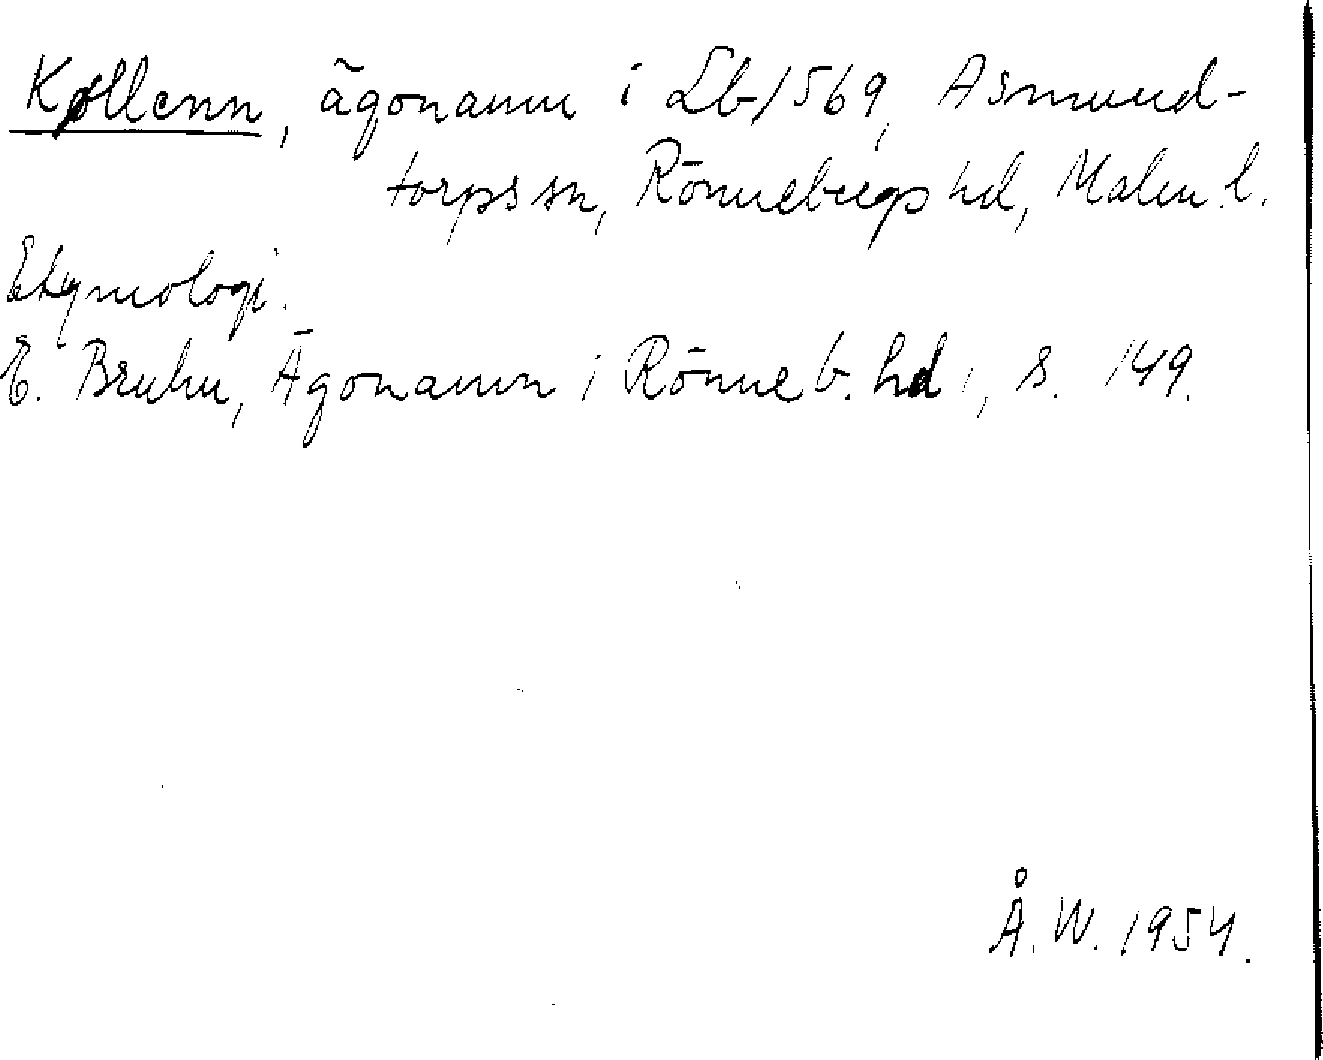 Køllenn, ägonamn i Lb 1569, Asmund-
torps sn, Rönnebergs hd, Malm. l.
Etymologi.
E. Bruhn, Ägonamn i Rönneb. hd, s. 149.
Å. W. 1954.